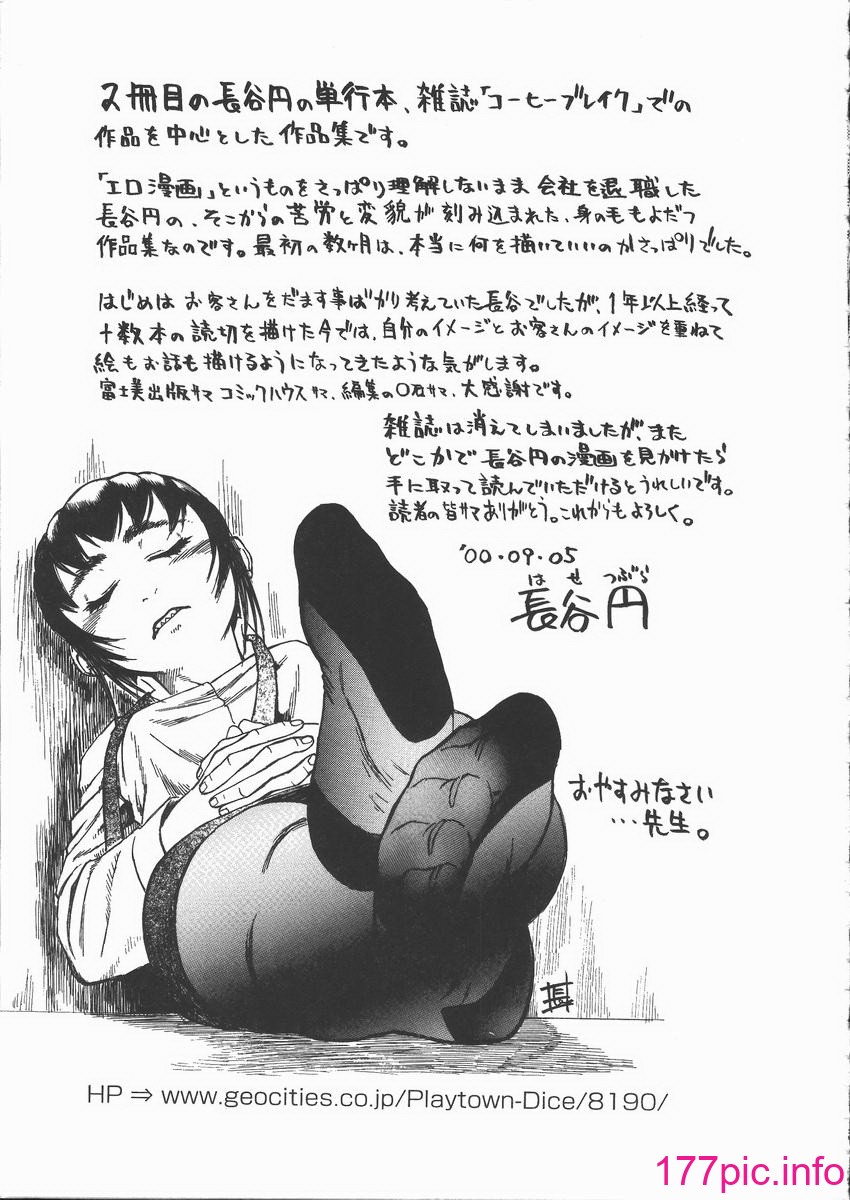 2冊目の長谷円の単行本、雑誌「コーヒーブレイク」での
作品を中心とした作品集です。
「エロ漫画」というものをさっぱり理解しないまま会社を退職した
長谷円の、そこからの苦労と変貌が刻み込まれた、身の毛もよだつ
作品集なのです。最初の数ヶ月は、本当に何を描いていいのかさっぱりでした。
はじめはお客さんをだます事ばかり考えていた長谷でしたが、1年以上経って
十数本の読切を描けた今では、自分のイメージとお客さんのイメージを重ねて
絵もお話も描けるようになってきたような気がします。
富士美出版サマ コミックハウスサマ、編集の〇石サマ、大感謝です。
雑誌は消えてしまいましたが、また
どこかで長谷円の漫画を見かけたら
手に取って読んでいただけるとうれしいです。
読者の皆サマありがとう。これからもよろしく。
'00・09・05
はせ つぶら
長谷円
おやすみなさい
…先生。
HP ⇒ www.geocities.co.jp/Playtown-Dice/8190/
177pic.info